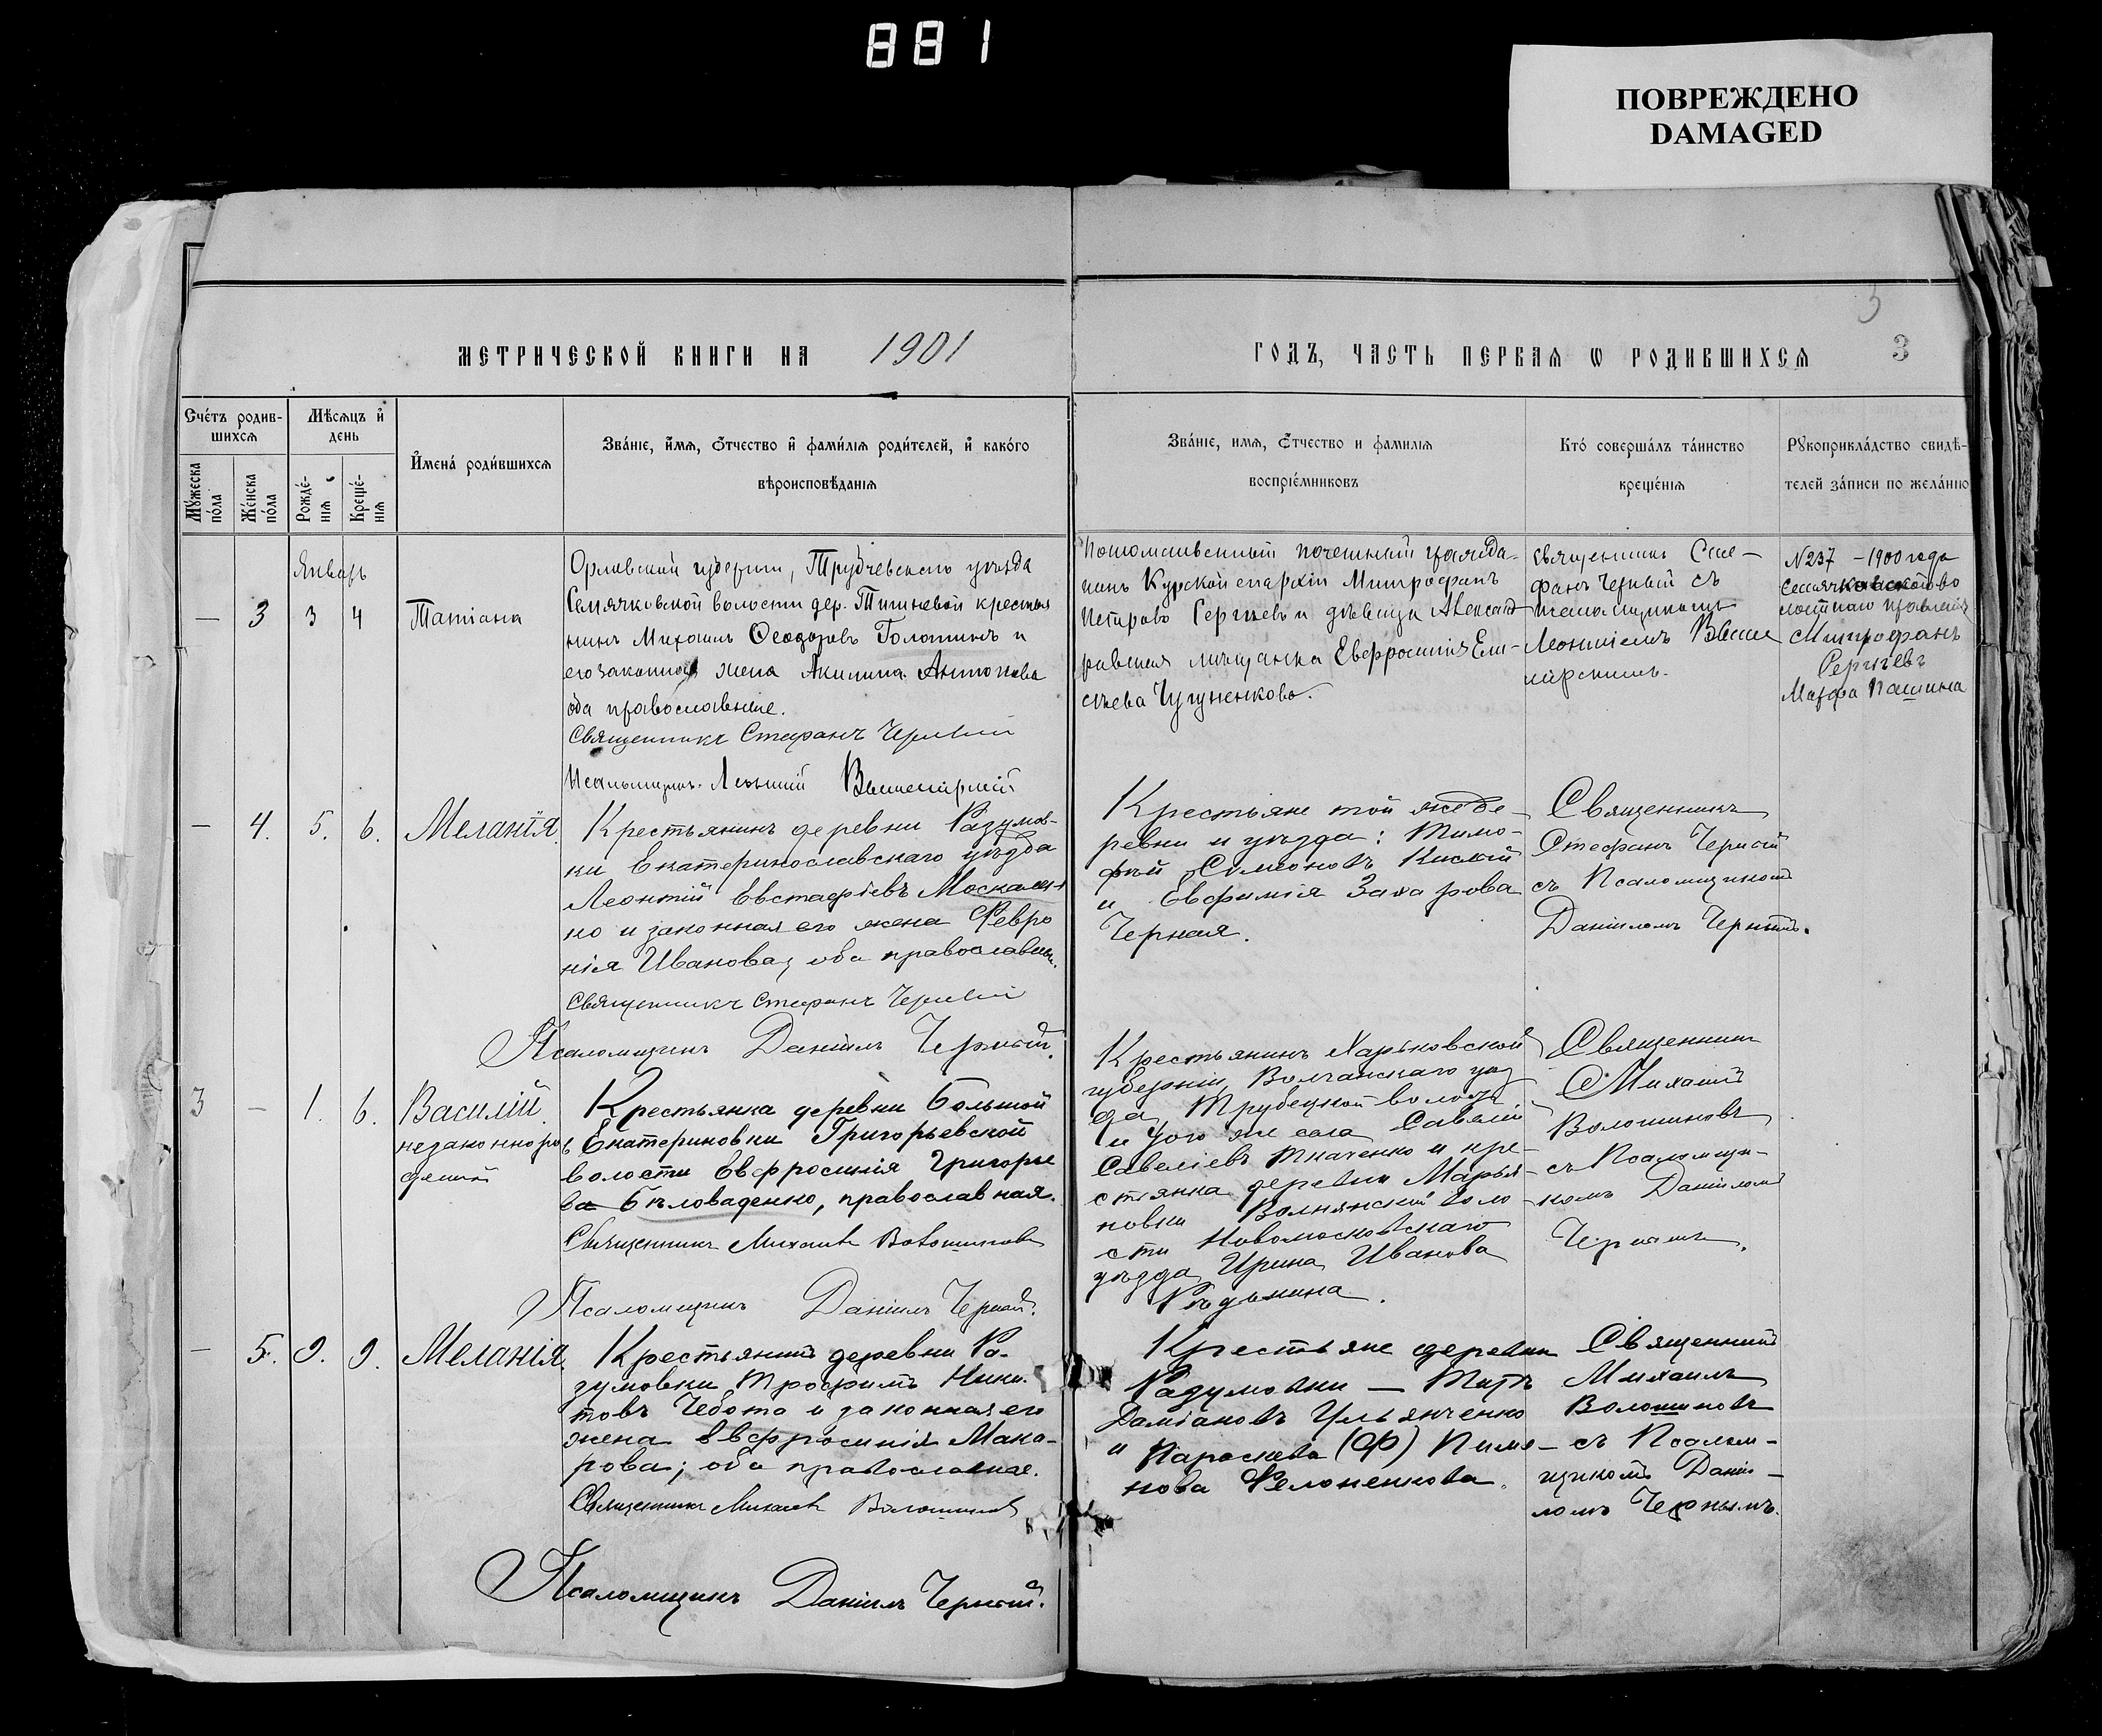 881
ПОВРЕЖДЕНО
DAMAGED
МЕТРИЧЕСКОЙ КНИГИ НА 1901
ГОДЪ, ЧАСТЬ ПЕРВАЯ Ѡ РОДИВШИХСЯ
3
3
Счётъ родив-
шихся
Мѣсяцъ и
день
Имена родившихся
Званіе, имя, отчество и фамилія родителей, и какого
вѣроисповѣданія
Мужеска
пола
Женска
пола
Рожде-
нія
Креще-
нія
Званіе, имя, отчество и фамилія
воспріемниковъ
Кто совершалъ таинство
крещенія
Рукоприкладство свидѣ-
телей записи по желанію
Январь
— 3 3 4 Татіана
Орловской губерніи, Трубчевскаго уѣзда
Семячковской волости дер. Тишневой крестья
нинъ Михаилъ Ѳеодоровъ Голотинъ и
его законная жена Акилина Антонова
оба православные.
Священникъ Стефанъ Черный
Псаломщикъ Леонтій
Потомственный почетный гражда-
нинъ Курской епархіи Митрофанъ
Петровъ Сергѣевъ и дѣвица Александ-
ровская мѣщанка Евфросинія Ели-
сѣева Чугуненкова.
Священникъ Сте-
фанъ Черный съ
псаломщикомъ
Леонтіемъ
№237 — 1900 года
Семячковскаго во
лостнаго правленія
Митрофанъ
Сергѣевъ
Марфа Пашина
— 4. 5. 6. Меланія.
Крестьянинъ деревни Разумов-
ки Екатеринославскаго уѣзда
Леонтій Евстафіевъ Москален
ко и законная его жена Февро
нія Иванова; оба православны.
Священникъ Стефанъ Черный
Псаломщикъ Даніилъ Черный.
Крестьяне той же де-
ревни и уѣзда: Тимо-
фей Симеоновъ Кислый
и Евфимія Захарова
Черная.
Священникъ
Стефанъ Черный
съ Псаломщикомъ
Даніиломъ Чернымъ.
3 — 1. 6. Василій
незаконнорож
денный
Крестьянка деревни Большой
Екатериновки Григорьевской
волости Евфросинія Григорье
ва Бѣловаденко, православная.
Священникъ Михаилъ Волошиновъ
Псаломщикъ Даніилъ Черный.
Крестьянинъ Харьковской
губерніи, Волчанскаго уѣз
да, Трубецкой волос
и того же села Савелій
Савеліевъ Ткаченко и кре-
стьянка деревни Марья-
новки Волнянской воло
сти Новомосковскаго
уѣзда Ирина Иванова
Священникъ
Михаилъ
Волошиновъ
съ Псаломщи-
комъ Даніиломъ
Чернымъ.
— 5. 9. 9. Меланія.
Крестьянинъ деревни Ра-
зумовки Трофимъ Ники-
товъ Чебота и законная его
жена Евфросинія Мака-
рова; оба православные.
Священникъ Михаилъ Волошиновъ
Псаломщикъ Даніилъ Черный.
Крестьяне деревни
Разумовки —
Даміановъ Ульянченко
и Параскева (Ф) Пиме-
нова Филоненкова.
Священникъ
Михаилъ
Волошиновъ
съ Псалом-
щикомъ Даніи-
ломъ Чернымъ.